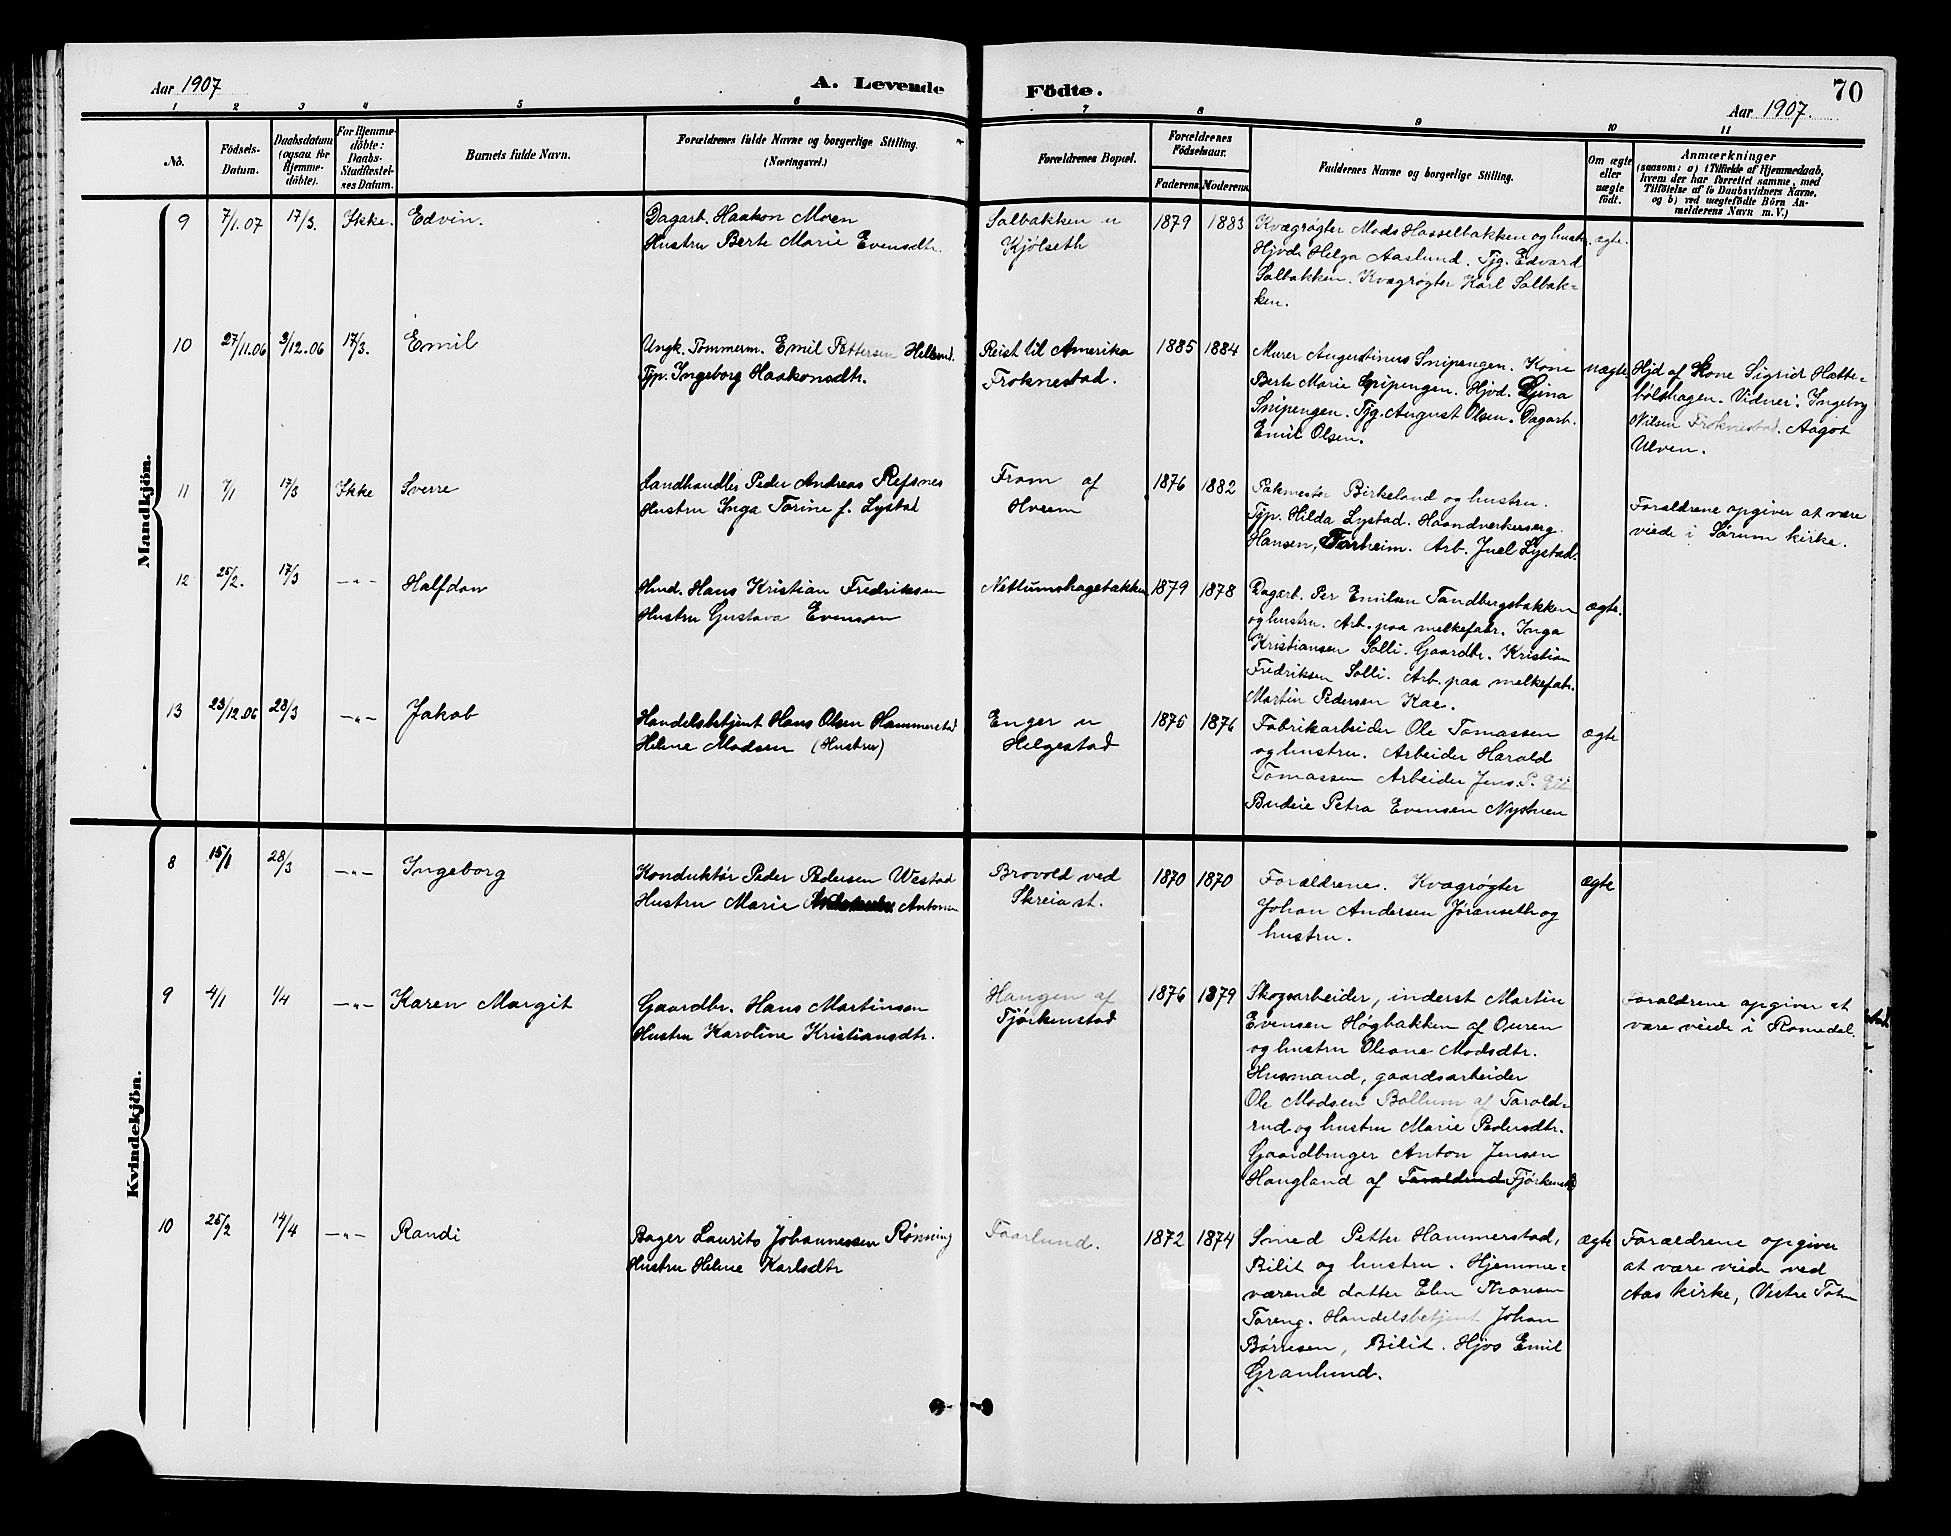 Aar 1907
A. Levende
Födte.
70
Aar 1907.
1 2 3 4 5 6 7 8 9 10 11
No.
Födsels-Datum.
Daabsdatum (ogsaa for Hjemme-döbte).
For Hjemme-döbte: Daabs-Stadfæstel-ses Datum.
Barnets fulde Navn.
Forældrenes fulde Navne og borgerlige Stilling.
(Næringsvei.)
Forældrenes Bopæl.
Forældrenes Födselsaar.
Faderens.
Moderens.
Faddernes Navne og borgerlige Stilling.
Om ægte eller uægte födt.
Anmærkninger
(saasom: a) i Tilfælde af Hjemmedaab,
hvem der har forrettet samme, med
Tilföielse af to Daabsvidners Navne,
og b) ved uægtefödte Börn An-
melderens Navn m. V.)
Mandkjön.
9 7/1.07 17/3. Ikke. Edvin.
Dagarb. Haakon Moen
Hustru Berte Marie Evensdtr.
Salbakken u
Kjölseth
1879 1883
Kvægrøgter Mads Hasselbakken og hustr.
Hjvd. Helga Aaslund. Tjg. Edvard
Salbakken. Kvægrøgter Karl Salbak-
ken.
ægte.
10 27/11.06 3/12.06 17/3. Emil
Ungk. Tømmerm. Emil Pettersen
Tjp. Ingeborg Haakonsdtr.
Reist til Amerika
Froknestad.
1885 1884
Murer Augustinus Snipengen. Kone
Berte Marie Snipengen. Hjvd.
Snipengen. Tjg. August Olsen. Dagarb.
Emil Olsen.
uægte
Hjd af Kone Sigrid Hatte-
bölshagen. Vidner: Ingeborg
Nilsen Froknestad. Aagot
Ulven.
11 7/1 17/3 Ikke Sverre
Landhandler Peder Andreas Refsnes
Hustru Inga Torine f. Lystad
Fram af
Hveem
1876 1882
Pakmester Birkeland og hustru.
Tjp. Hilda Lystad. Haandverkersvg.
Hansen, Farheim. Arb. Juel Lystad.
Forældrene opgiver at være
viede i Sørum kirke.
12 25/2. 17/3 -"- Halfdan
Hmd. Hans Kristian Fredriksen
Hustru Gustava Evensen
Netlumshagebakken
1879 1878
Dagarb. Per Emilsen Tandbergsbakken
og hustru. Arb. paa melkefabr. Inga
Kristiansen Solli. Gaardbr. Kristian
Fredriksen Solli. Arb. paa melkefabr.
Martin Pedersen Kae.
ægte.
13 23/12.06 28/3 -"- Jakob
Handelsbetjent Hans Olsen Hammerstad
Helene Madsen (Hustru)
Enger u
Helgestad
1875 1876
Fabrikarbeider Ole Tomassen
og hustru. Arbeider Harald
Tomassen Arbeider Jens. P.
Budeie Petra Evensen Nystuen
ægte
Kvindekjön.
8 15/1 28/3 -"- Ingeborg
Konduktør Peder Pedersen Westad
Hustru Marie Antonsen
Brovold ved
Skreia st.
1870 1870
Forældrene. Kvægrøgter
Johan Andersen Jøranseth og
hustru.
ægte
9 4/1 1/4 -"- Karen Margit
Gaardbr. Hans Martinsen
Hustru Karoline Kristiansdtr.
Haugen af
Fjørkenstad
1876 1879
Skogsarbeider, inderst Martin
Evensen Høgbakken af Ouren
og hustru Oleane Madsdtr.
Husmand, gaardsarbeider
Ole Madsen Bollum af Tarald-
rud og hustru Marie Pedersdtr.
Gaardbruger Anton Jensen
Haugland af Taraldrud Fjørkenstad
Forældrene opgiver at
være viede i Romedal.
10 25/2 14/4 -"- Randi
Bager Laurits Johannessen Rønning
Hustru Helene Karlsdtr
Faarlund.
1872 1874
Smed Petter Hammerstad,
Bilit og hustru. Hjemme-
værend datter Elen Thoresen
Toreng. Handelsbetjent Johan
Børresen, Bilit. Hjvs Emil
Granlund.
ægte
Forældrene opgiver
at være viede ved
Aas kirke, Vestre Toten